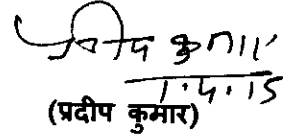 प्रदीप कुमार
1.4.15
(प्रदीप कुमार)